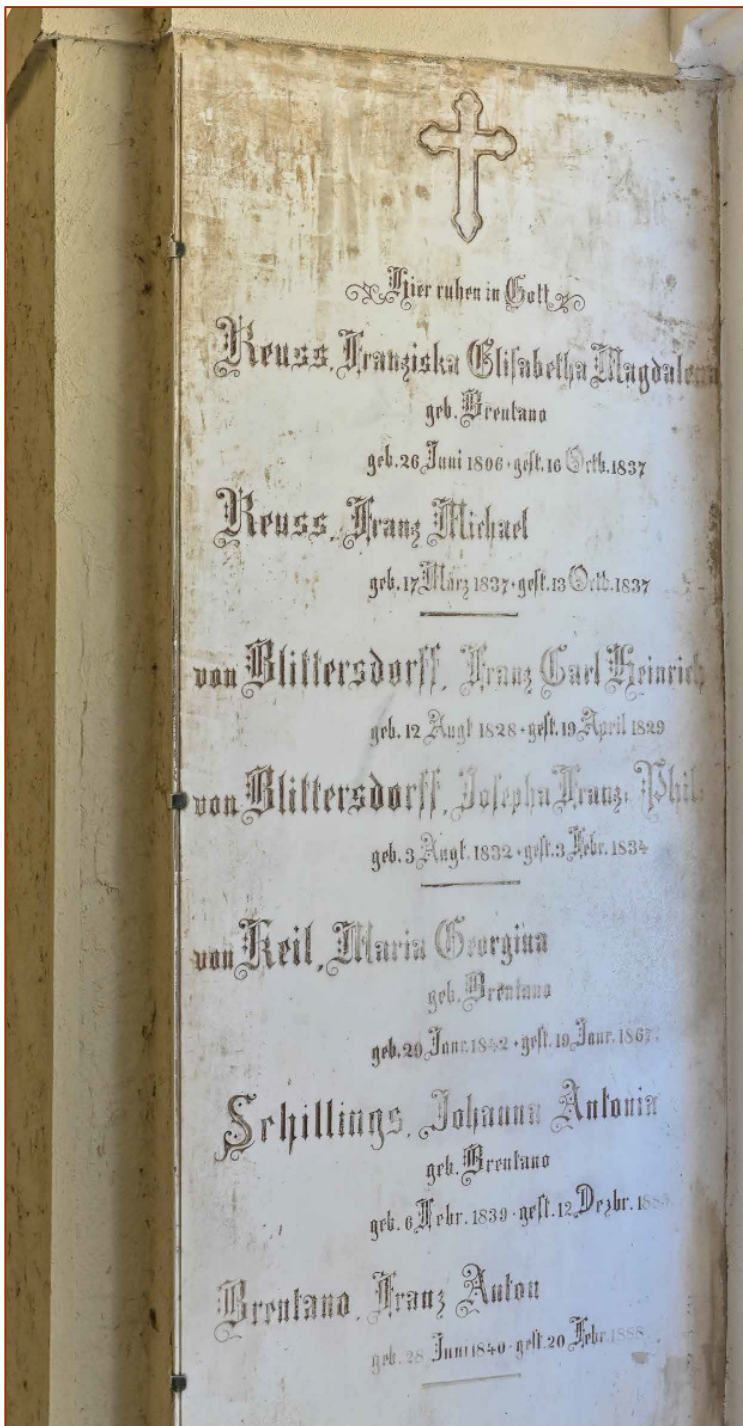 Hier ruhen in Gott
Reuss, Franziska Elisabetha Magdalena
geb. Brentano
geb. 26 Juni 1806 · gest. 16 Octb. 1837
Reuss, Franz Michael
geb. 17 März 1837 · gest. 13 Octb. 1837
von Blittersdorff, Franz Carl Heinrich
geb. 12 Augt 1828 · gest. 19 April 1829
von Blittersdorff, Josepha Franz. Phil.
geb. 3 Augt. 1832 · gest. 3 Febr. 1834
von Keil, Maria Georgina
geb. Brentano
geb. 29 Janr. 1842 · gest. 19 Janr. 1867.
Schillings, Johanna Antonia
geb. Brentano
geb. 6 Febr. 1839 · gest. 12 Dezbr.
Brentano, Franz Anton
geb. 28 Juni 1840 · gest. 20 Febr. 1888.